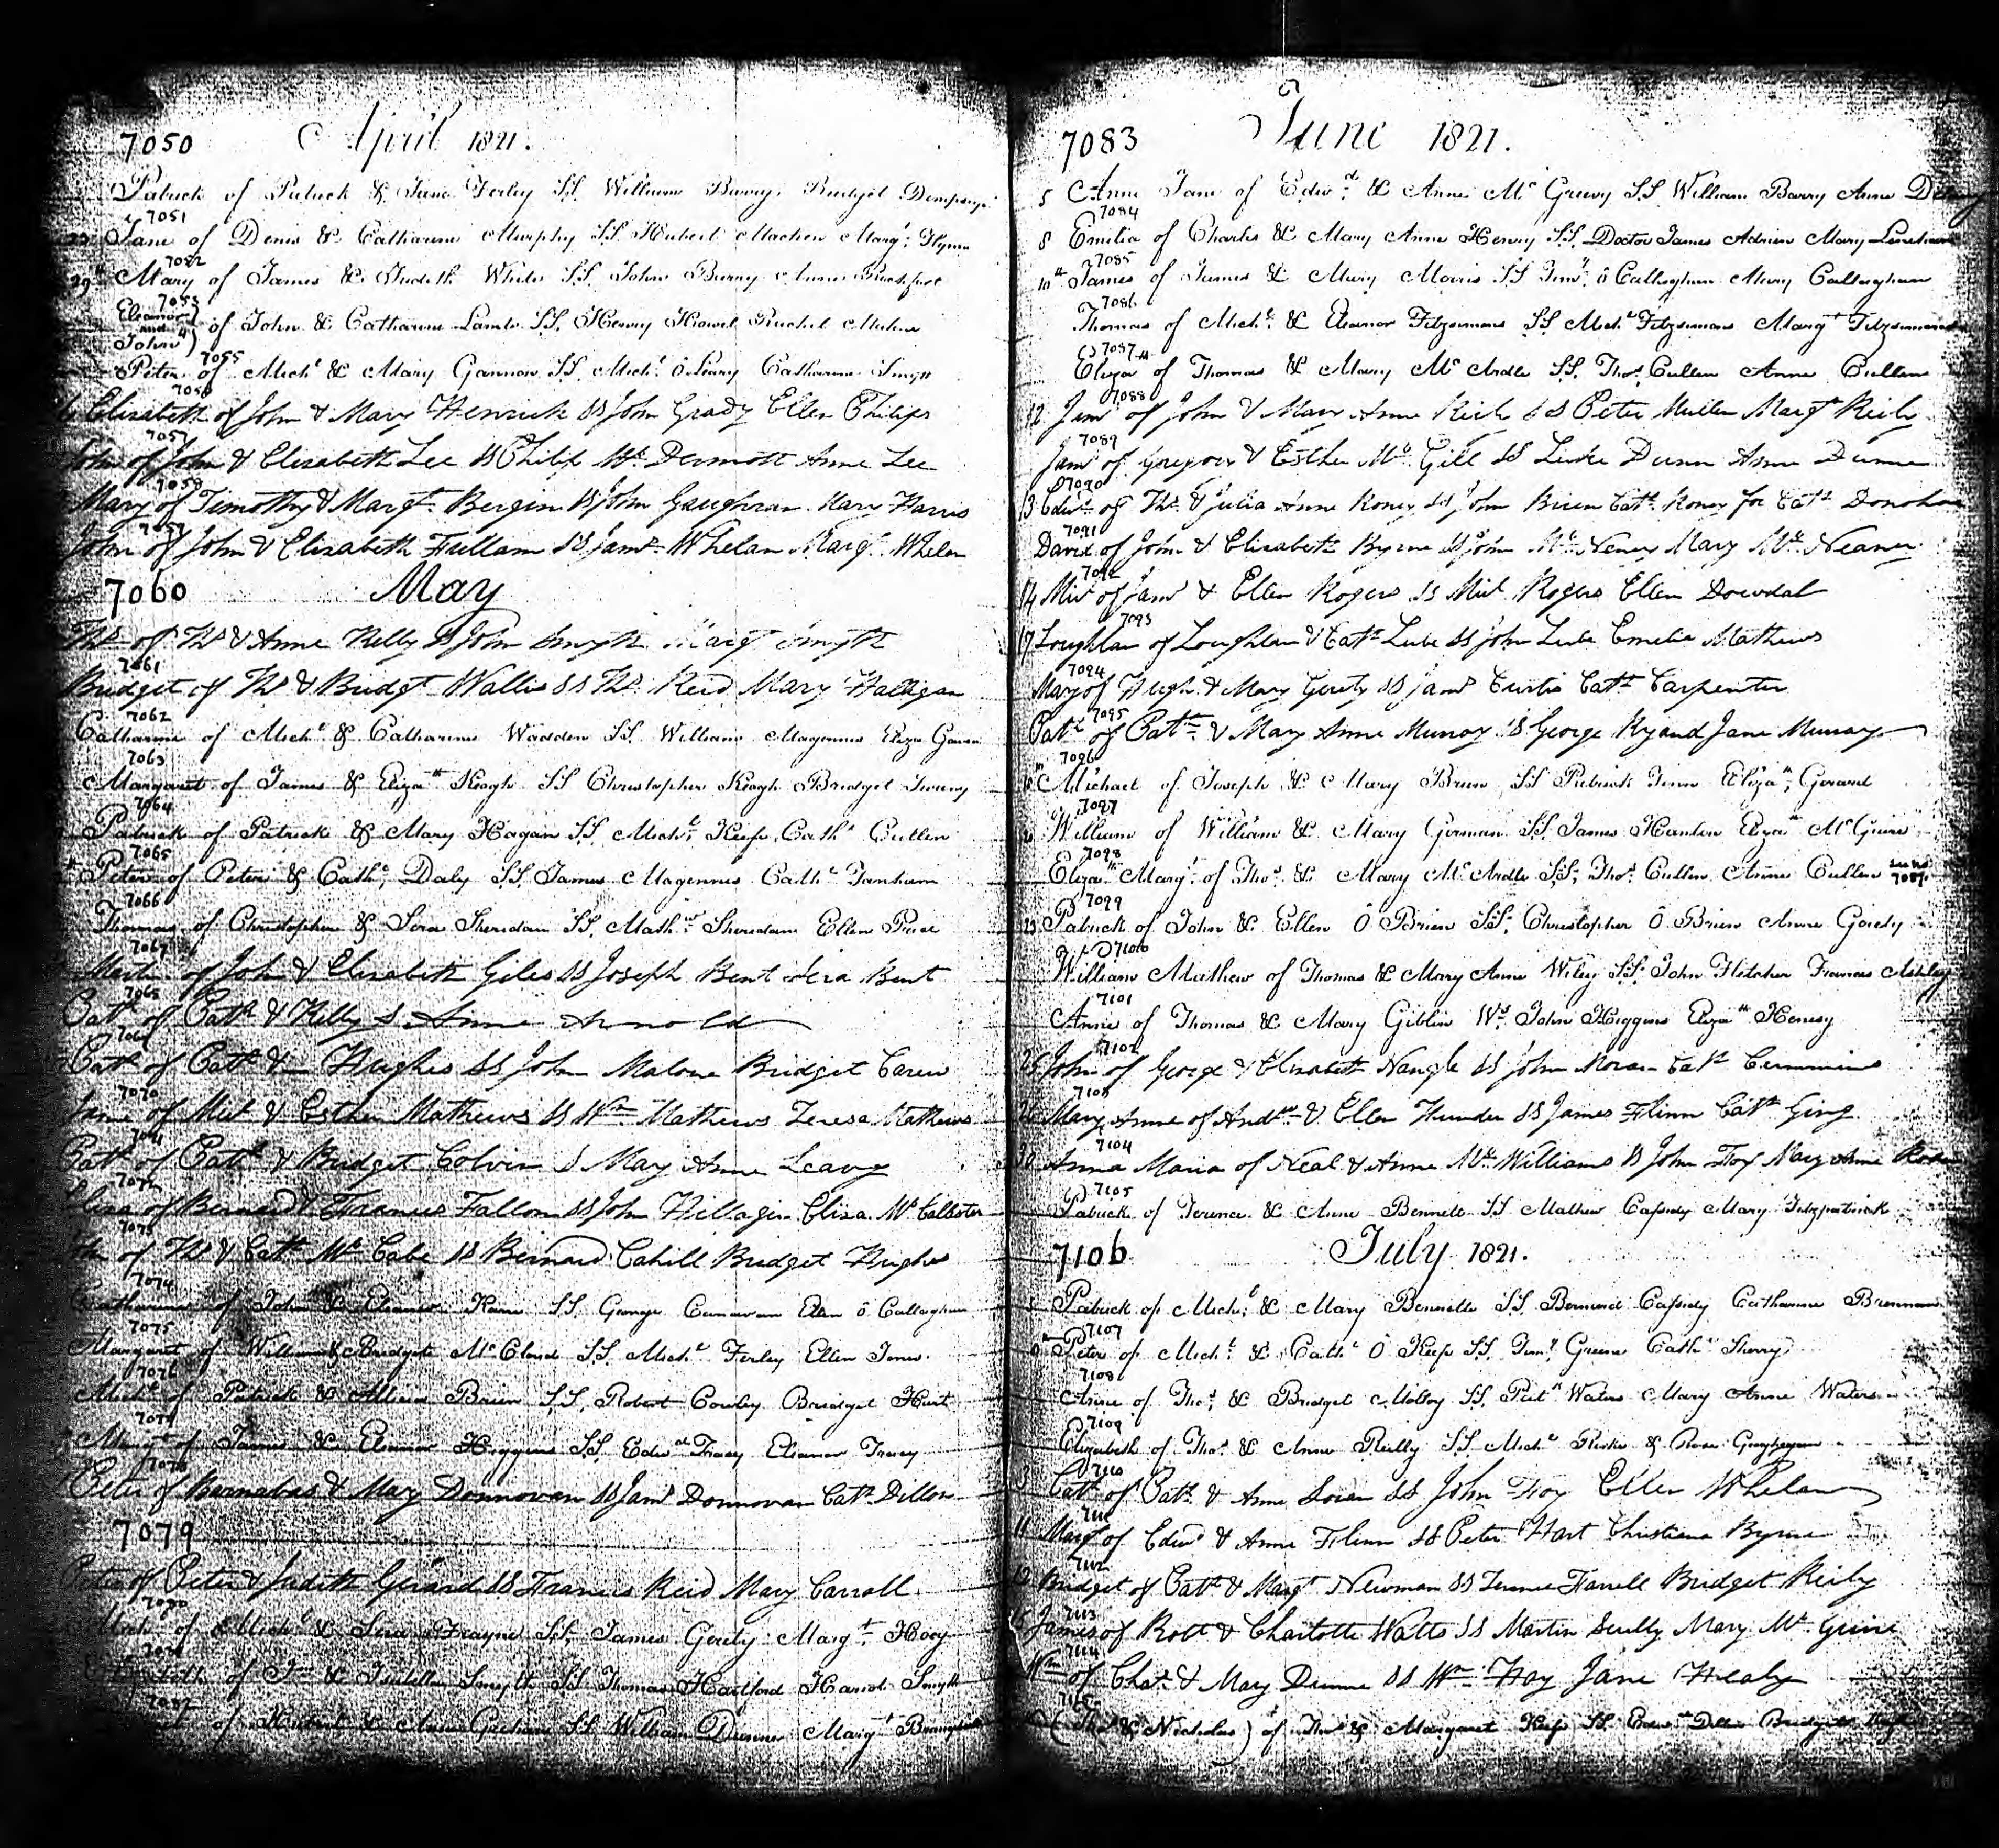 7050 April 1821.
Patrick of Patrick & Jane Ferley SS. William Barry Bridget Dempsey
7051
Jane of Denis & Catharine Murphy SS. Hubert Marg.t Flynn
7052
29th Mary of James & Judith White SS. John Barry Anne
7053
Eleanor and John of John & Catharine Lamb SS. Henry Rachel
7055
Peter of Mich.l & Mary Gannon SS. Mich.l O'Leary Catharine Smyth
7056
Elizabeth of John & Mary Henrick SS John Grady Ellen Philips
7057
John of John & Elizabeth Lee SS Philip Mc. Dermott Anne Lee
7058
Mary of Timothy & Margt. Bergin SS John Gaughran Mary Harris
7059
John of John & Elizabeth Fullam SS Jams. Whelan Margt. Whelan
7060 May
Ths of Ths & Anne Kelly SS John Smyth Margt Smyth
7061
Bridget of Ths & Bridgt Wallis SS Ths. Reid Mary Halligan
7062
Catharine of Mich.l & Catharine Wadden SS. William Magennis Eliza
7063
Margaret of James & Eliza.th Keogh SS Christopher Keogh Bridget
7064
Patrick of Patrick & Mary Hagan SS. Mich.l Keefe Cath.e Cullen
7065
Peter of Peter & Cath.e Daly SS. James Magennis Cath.e Tanham
7066
Thomas of Christopher & Sera Sheridan SS. Math.w Sheridan Ellen
7067
Martin of John & Elizabeth Giles SS Joseph Bent Sera Bent
7068
Patk of Patk & Kelly S Anne Arnold
7069
Patk of Patk & — Hughes SS John Malone Bridget Carew
7070
Jane of Micl & Esther Mathews SS Wm Mathews Teresa Mathews
7071
Patk of Patk & Bridget Colvin S Mary Anne Leavy
7072
Eliza of Bernard & Frances Fallon SS John Eliza Mc. Callister
7073
of Ths & Cath Mc Cabe SS Bernard Cahill Bridget Hughes
7074
Catharine of John & Eleanor Kane SS. George Canavan Ellen O'Callaghan
7075
Margaret of William & Bridget McCloud SS. Mich.l Ferley Ellen
7076
Mich.l of Patrick & Brien SS. Robert Cowley Bridget Hart
7077
Marg.t of James & Eleanor Higgins SS. Edw.d Tracy Eleanor Tracy
7078
Peter of Barnabas & Mary Donnovan SS Jams Donnovan Cath. Dillon
7079
Peter of Peter & Judith Gerard SS Francis Reid Mary Carroll
7080
Mich.l of Mich.l & Sera Frayne SS. James Gerity Marg.t Hoey
7081
of & Isabella Smyth SS Thomas Hartford Harriot Smyth
7082
of Hubert & Anne Graham SS William Dunne Marg.t
7083 June 1821.
5 Anne Jane of Edw.d & Anne McGreevy SS William Barry Anne
7084
8 Emilia of Charles & Mary Anne Henry SS. Doctor James Adrien Mary
7085
10th James of James & Mary Morris SS Tim.y O'Callaghan Mary Callaghan
7086
Thomas of Mich.l & Eleanor Fitzsimons SS Mich.l Fitzsimons Marg.t Fitzsimons
7087
Eliza.th of Thomas & Mary McArdle SS. Tho.s Cullen Anne Cullen
7088
12 Jams of John & Mary Anne SS Peter Mullen Margt
7089
Jams of Gregory & Esther Mc. Gill SS Luke Dunn Anne Dunne
7090
13 Edwd. of Ths. & Julia Anne Roney SS John Brien Cath. Roney for Cath Donohoe
7091
David of John & Elizabeth Byrne SS John Mc. Neney Mary Mc. Neaney
7092
14 Micl of Jams & Ellen Rogers SS Micl Rogers Ellen Dowdal
7093
17 Loughlan of Loughlan & Cath Lube SS John Lube Emelia Mathews
7094
Mary of Hugh & Mary Gerity SS Jams Curtis Cath Carpenter
7095
Patk of Patk & Mary Anne Murray SS George Ryan and Jane Murray
7096
Michael of Joseph & Mary Brien SS Patrick Finn Eliza.th Gerard
7097
William of William & Mary Gorman SS. James Hanlon Eliza.th McGuire
7098
Eliza.th Marg.t of Tho.s & Mary McArdle SS. Tho.s Cullen Anne Cullen see no. 7087.
7099
23 Patrick of John & Ellen O'Brien SS. Christopher O'Brien Anne
7100
William Mathew of Thomas & Mary Anne Wiley SS. John Fletcher Frances Ashley
7101
Anne of Thomas & Mary Giblin Ws. John Higgins Eliza.th Henesy
7102
25 John of George & Elizabeth Nangle SS John Moran Cath Cummins
7103
26 Mary Anne of Andw. & Ellen Thunder SS James Flinn Cath Ging
7104
30 Anna Maria of Neal & Anne Mc. Williams SS John Foy Mary Anne
7105
Patrick of Terence & Anne Bennett SS Mathew Cassidy Mary Fitzpatrick
7106 July 1821.
Patrick of Mich.l & Mary Bennett SS. Bernard Cassidy Catharine Brennan
7107
Peter of Mich.l & Cath.e O'Keefe SS. Tim.y Greene Cath.e Sherry
7108
Anne of Tho.s & Bridget Molloy SS. Pat.k Waters Mary Anne Waters
7109
Elizabeth of Tho.s & Anne Reilly SS. Mich.l & Rose Geoghegan
7110
Cath of Patk. & Anne SS John Foy Ellen Whelan
7111
11 Margt of Edwd & Anne Flinn SS Peter Hart Christiana Byrne
7112
12 Bridget of Patk & Margt. Newman SS Farrell Bridget Reily
7113
15 James of Robt & Charlotte Watts SS Martin Scully Mary Mc. Guire
7114
Wm of Chas. & Mary Dunne SS Wm Hay Jane Healy
7115
( & Nicholas) of & Margaret Keefe SS. Edw.d Dillon Bridget